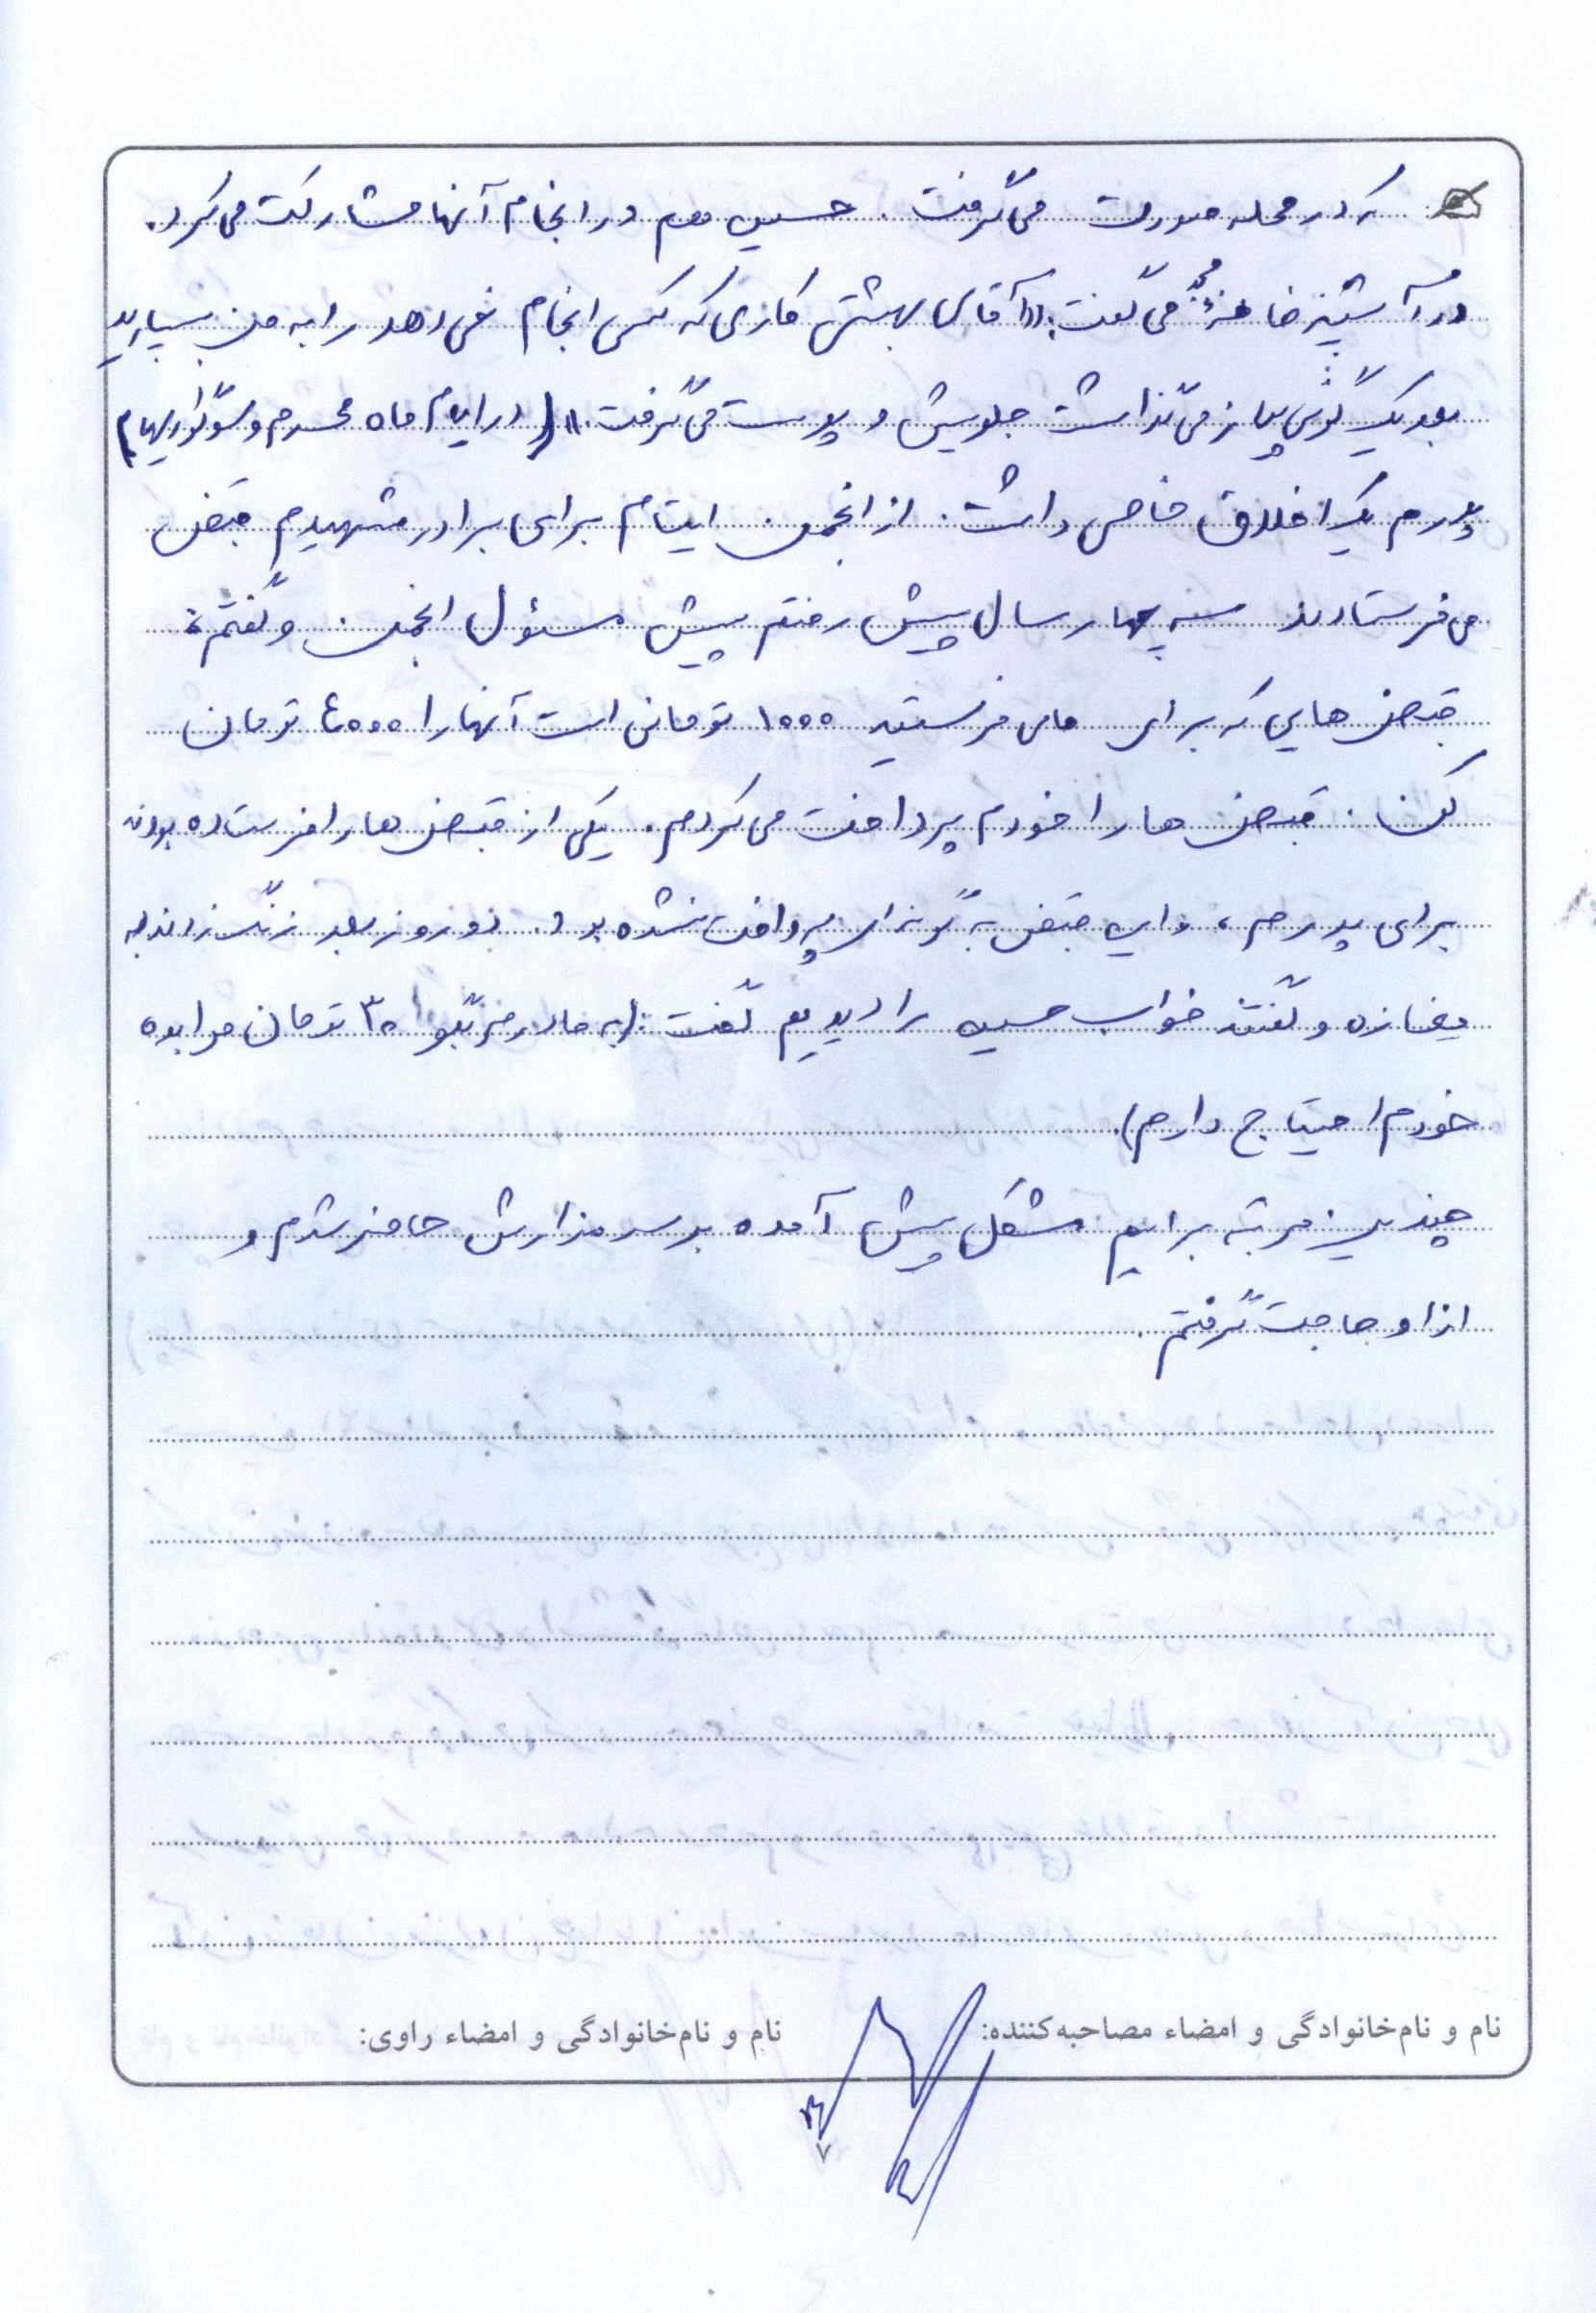 که در محله صورت می‌گرفت. حسین هم در انجام آنها مشارکت می‌کرد.
در آشپزخانه می‌گفت: «آقای بهشتی کاری که کسی انجام نمی‌دهد را به من بسپارید
بعد یک گونی پیاز می‌گذاشت جلویش و پوست می‌گرفت.» (در ایام ماه محرم و سوگواریها)
پدرم یک اخلاق خاصی داشت. از انجمن ایتام برای برادر شهیدم قبض
می‌فرستادند سه چهار سال پیش رفتم پیش مسئول انجمن و گفتم:
قبض‌هایی که برای ما می‌فرستید ۱۰۰۰ تومانی است آنها را ۴۰۰۰ تومان
کن. قبض‌ها را خودم پرداخت می‌کردم. یکی از قبض‌ها را فرستاده بودند
برای پدرم، و این قبض به گونه‌ای پرداخت نشده بود. دو روز بعد زنگ زدند به
مغازه و گفتند خواب حسین را دیدیم گفت: (به مادرم بگو ۳۰ تومان مرا بده
خودم احتیاج دارم).
چندین مرتبه برایم مشکل پیش آمده بر سر مزارش حاضر شدم و
از او حاجت گرفتم.
نام و نام‌خانوادگی و امضاء مصاحبه‌کننده: نام و نام‌خانوادگی و امضاء راوی:
۷